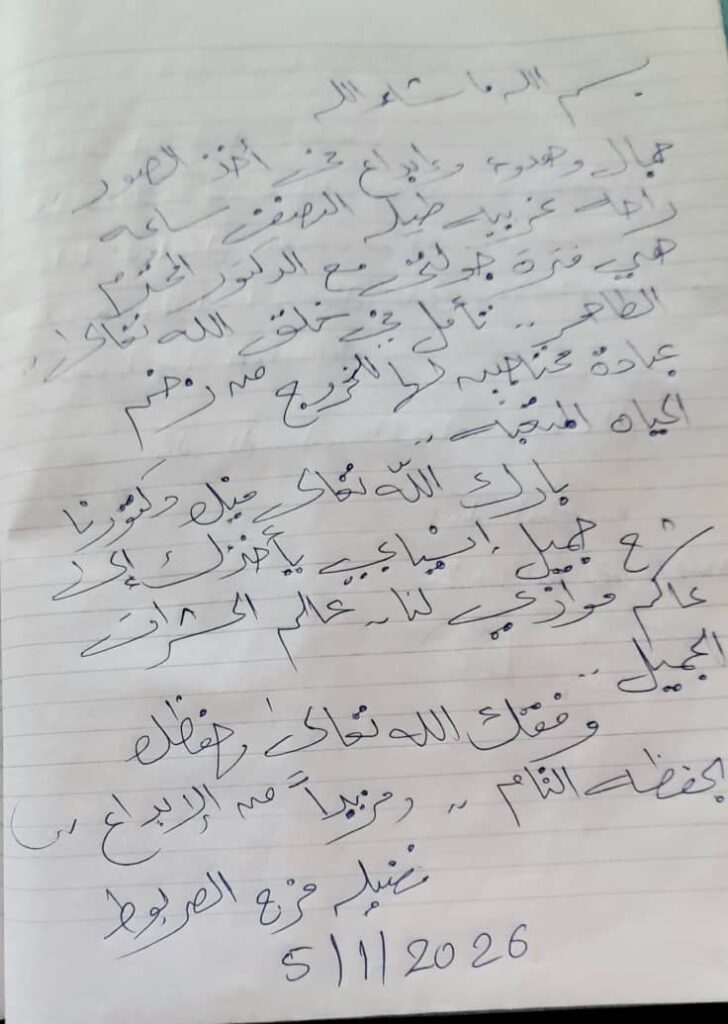 بسم الله ما شاء الله
جمال وهدوء وإبداع في أخذ الصور ..
راحة غريبه طيلة النصف ساعه
هي فترة جولتي مع الدكتور المحترم
الطاهر .. تأمل في خلق الله تعالى ..
عبادة للخروج من زخم
الحياه المتعبه ..
بارك الله تعالى فيك دكتورنا
شيء جميل إنسيابي يأخذك إلى
عالم موازي لنا .. عالم الحشرات
الجميل ..
وفقك الله تعالى وحفظك
بحفظه التام .. ومزيداً من الإبداع ..
فرج الصربوط
5/1/2026